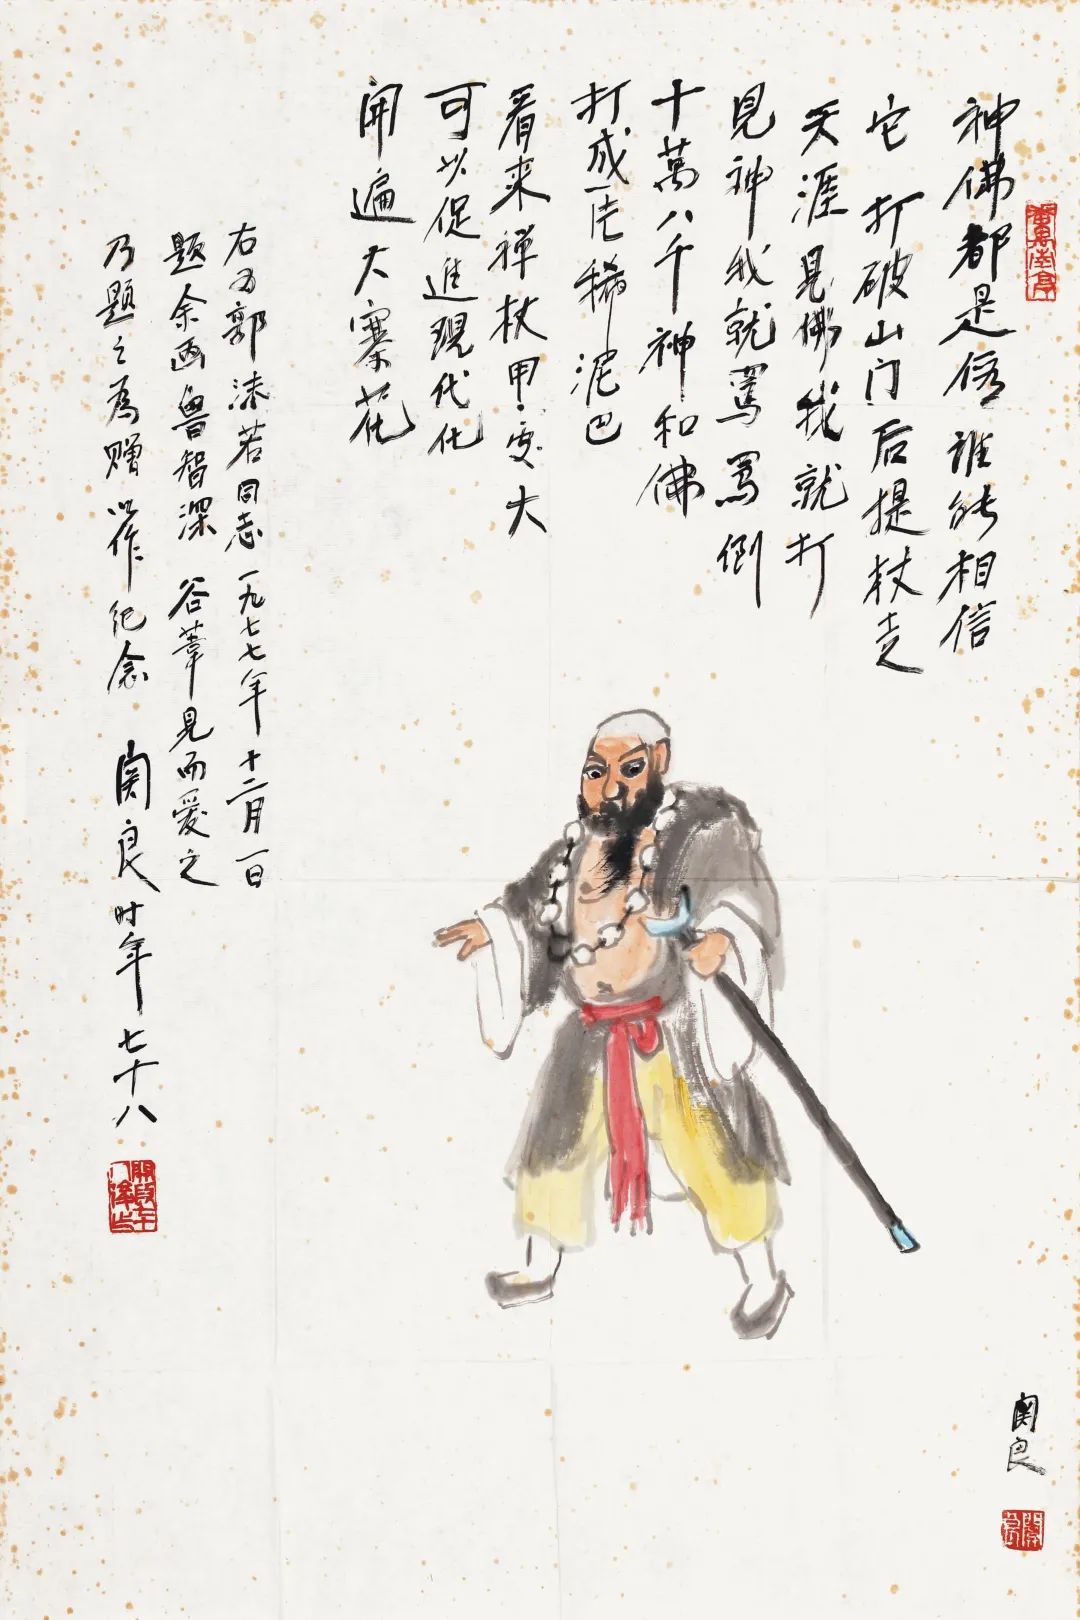 神佛都是假誰能相信
它打破山门后提杖走
天涯見佛我就打
見神我就罵罵倒
十萬八千神和佛
打成一片稀泥巴
看来禅杖用處大
可以促進現代化
開遍大寨花
右为郭沫若同志一九七七年十二月一日
题余画魯智深 谷葦見而愛之
乃题之為赠以作纪念 関良时年七十八
関良